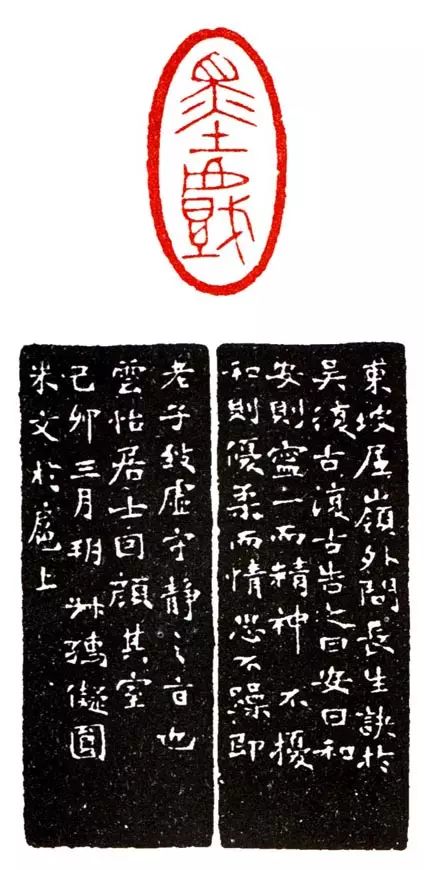 墨戲
東坡居嶺外問長生訣於
吳復古復古告之曰安曰和
安則寧一而精神不擾
和則優柔而情恣不躁即
老子致虛守靜之旨也
雲怡居士因顏其室
己卯三月儗圓
朱文於扈上